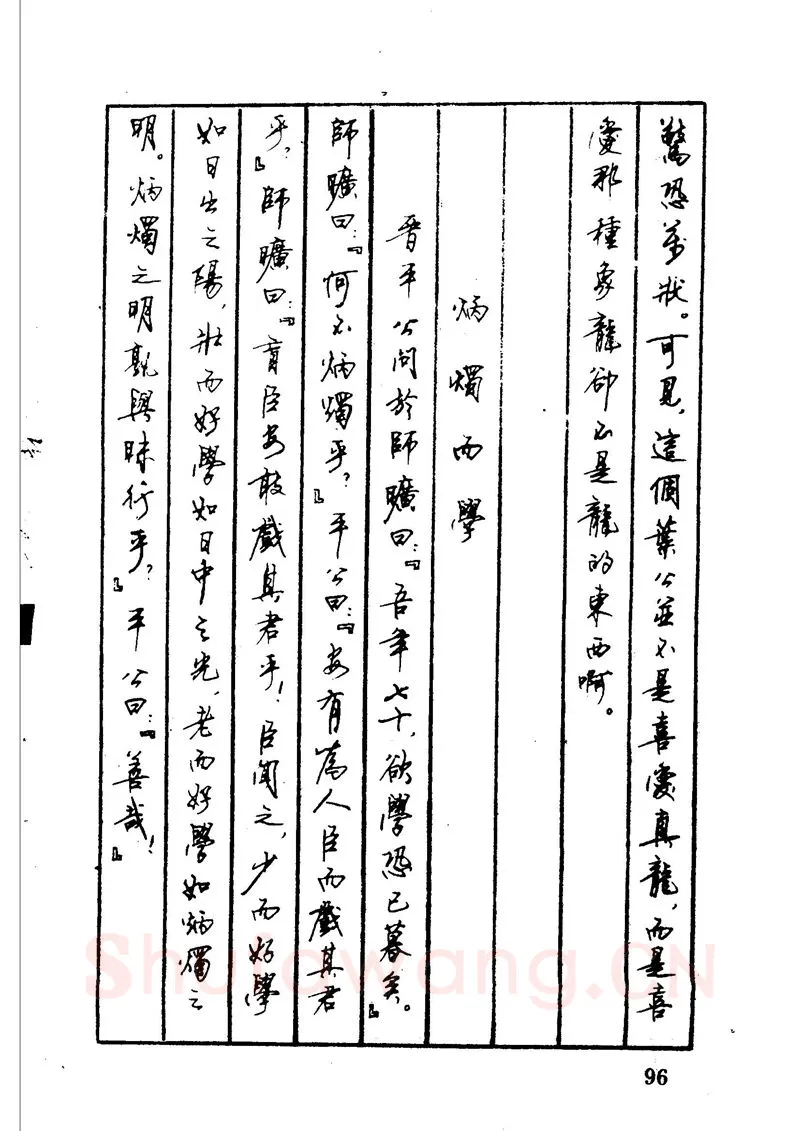 驚恐萬狀。可見，這個葉公並不是喜愛真龍，而是喜
愛那種象龍卻不是龍的東西啊。
炳燭而學
晋平公問於師曠曰：『吾年七十，欲學恐已暮矣。』
師曠曰：『何不炳燭乎？』平公曰：『安有為人臣而戲其君
乎？』師曠曰：『盲臣安敢戲其君乎！臣聞之，少而好學
如日出之陽，壯而好學如日中之光，老而好學如炳燭之
明。炳燭之明孰與昧行乎？』平公曰：『善哉！』
96
Shufawang.CN